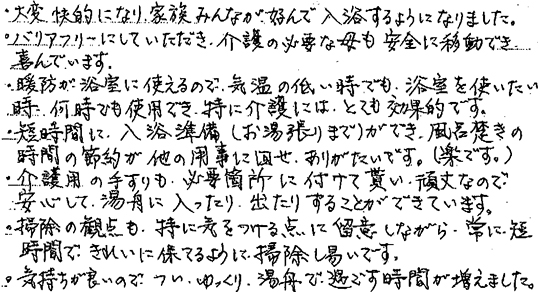 ・大変快的になり家族みんなが好んで入浴するようになりました。
・バリアフリーにしていただき、介護の必要な母も安全に移動でき
喜んでいます。
・暖防が浴室に使えるので、気温の低い時でも、浴室を使いたい
時、何時でも使用でき、特に介護には、とても効果的です。
・短時間に、入浴準備（お湯張りまで）ができ、風呂焚きの
時間の節約が他の用事に回せ、ありがたいです。（楽です。）
・介護用の手すりも、必要箇所に付けて貰い、頑丈なので
安心して、湯舟に入ったり、出たりすることができています。
・掃除の観点も、特に気をつける点に留意しながら、常に短
時間で、きれいに保てるように、掃除し易いです。
・気持ちが良いので、つい、ゆっくり、湯舟で過ごす時間が増えました。